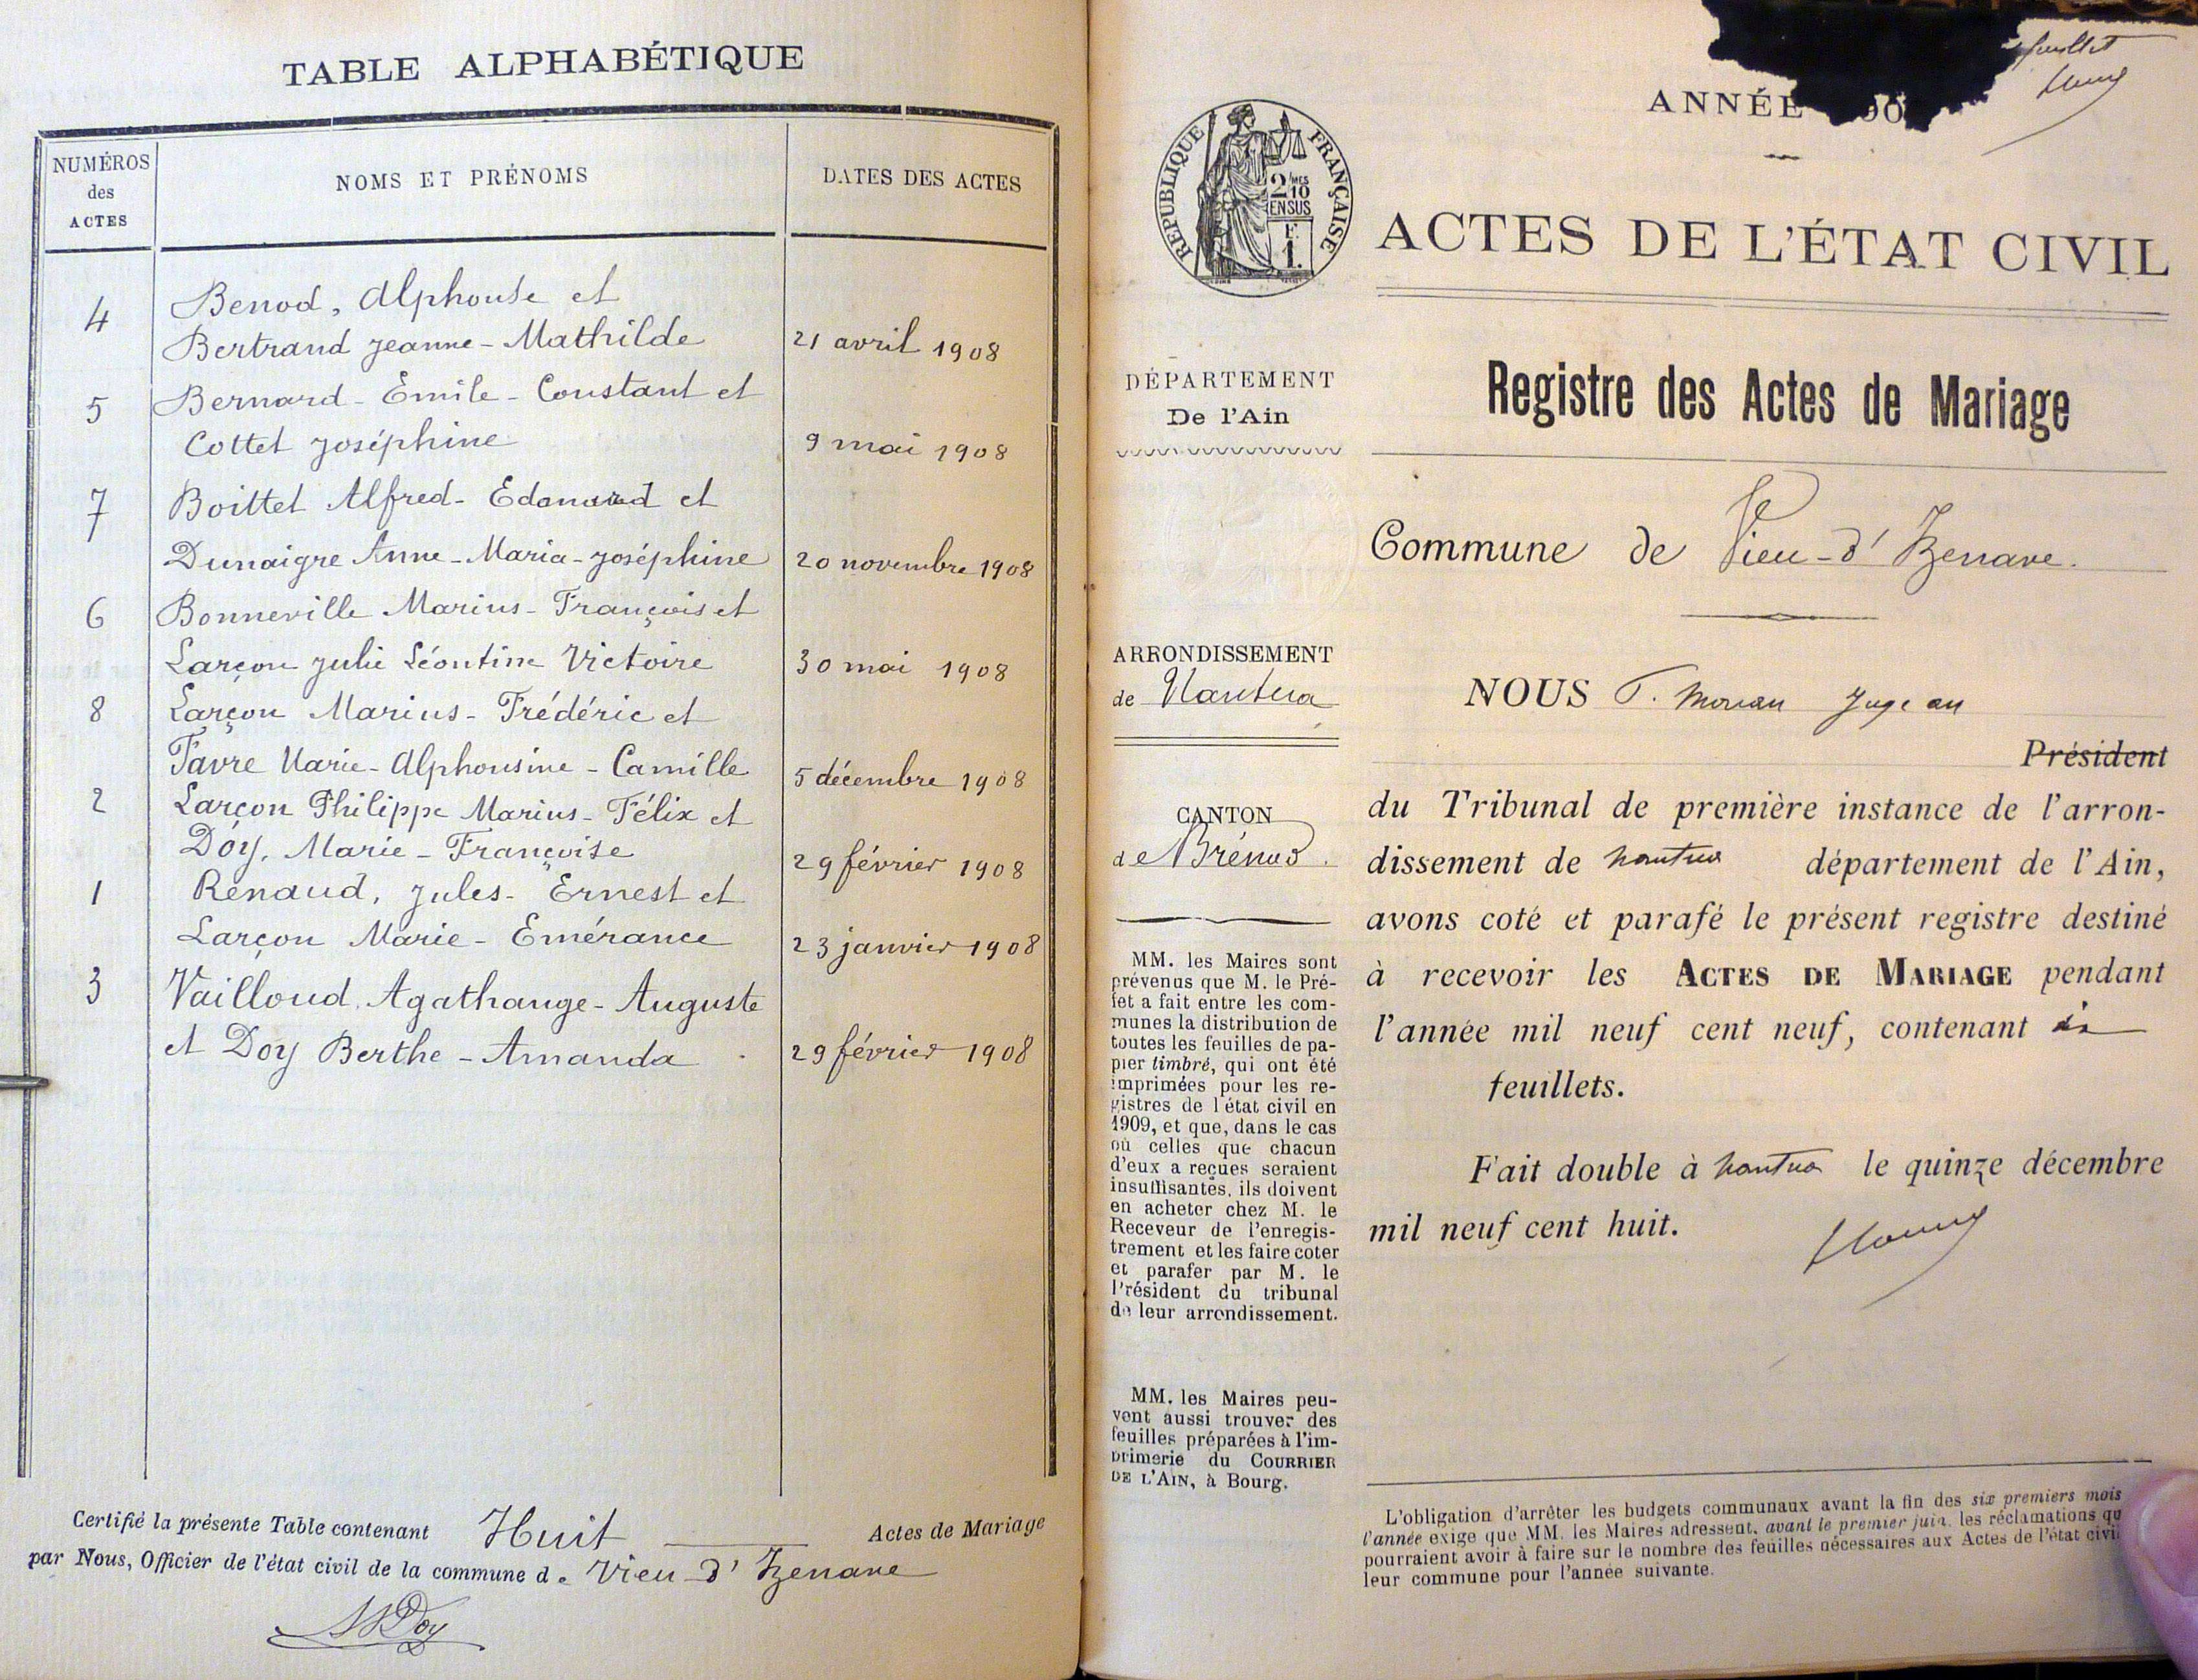 TABLE ALPHABÉTIQUE
NUMÉROS
des
ACTES
NOMS ET PRÉNOMS
DATES DES ACTES
4 Benod, Alphonse et
Bertrand Jeanne-Mathilde 21 avril 1908
5 Bernard-Emile-Constant et
Cottet Joséphine 9 mai 1908
7 Boittet Alfred-Edouard et
Dunaigre Anne-Maria-Joséphine 20 novembre 1908
6 Bonneville Marius-François et
Larçon Julie Léontine Victoire 30 mai 1908
8 Larçon Marius-Frédéric et
Favre Marie-Alphonsine-Camille 5 décembre 1908
2 Larçon Philippe Marius-Félix et
Doy, Marie-Françoise 29 février 1908
1 Renaud, Jules-Ernest et
Larçon Marie-Emérance 23 janvier 1908
3 Vailloud, Agathange-Auguste
et Doy Berthe-Amanda 29 février 1908
Certifié la présente Table contenant Huit Actes de Mariage
par Nous, Officier de l'état civil de la commune de Vieu-d'Izenave
Doy
feuillet
ANNÉE 90
RÉPUBLIQUE FRANÇAISE
2/10 MES
EN SUS
F.
1.
ACTES DE L'ÉTAT CIVIL
DÉPARTEMENT
De l'Ain
Registre des Actes de Mariage
Commune de Vieu-d'Izenave.
ARRONDISSEMENT
de Nantua
CANTON
de Brénod.
MM. les Maires sont
prévenus que M. le Pré-
fet a fait entre les com-
munes la distribution de
toutes les feuilles de pa-
pier timbré, qui ont été
imprimées pour les re-
gistres de l'état civil en
1909, et que, dans le cas
où celles que chacun
d'eux a reçues seraient
insuffisantes, ils doivent
en acheter chez M. le
Receveur de l'enregis-
trement et les faire coter
et parafer par M. le
Président du tribunal
de leur arrondissement.
MM. les Maires peu-
vent aussi trouver des
feuilles préparées à l'im-
primerie du COURRIER
DE L'AIN, à Bourg.
NOUS Juge au
Président
du Tribunal de première instance de l'arron-
dissement de Nantua département de l'Ain,
avons coté et parafé le présent registre destiné
à recevoir les ACTES DE MARIAGE pendant
l'année mil neuf cent neuf, contenant
feuillets.
Fait double à Nantua le quinze décembre
mil neuf cent huit.
L'obligation d'arrêter les budgets communaux avant la fin des six premiers mois
l'année exige que MM. les Maires adressent, avant le premier juin, les réclamations qu
pourraient avoir à faire sur le nombre des feuilles nécessaires aux Actes de l'état civil
leur commune pour l'année suivante.